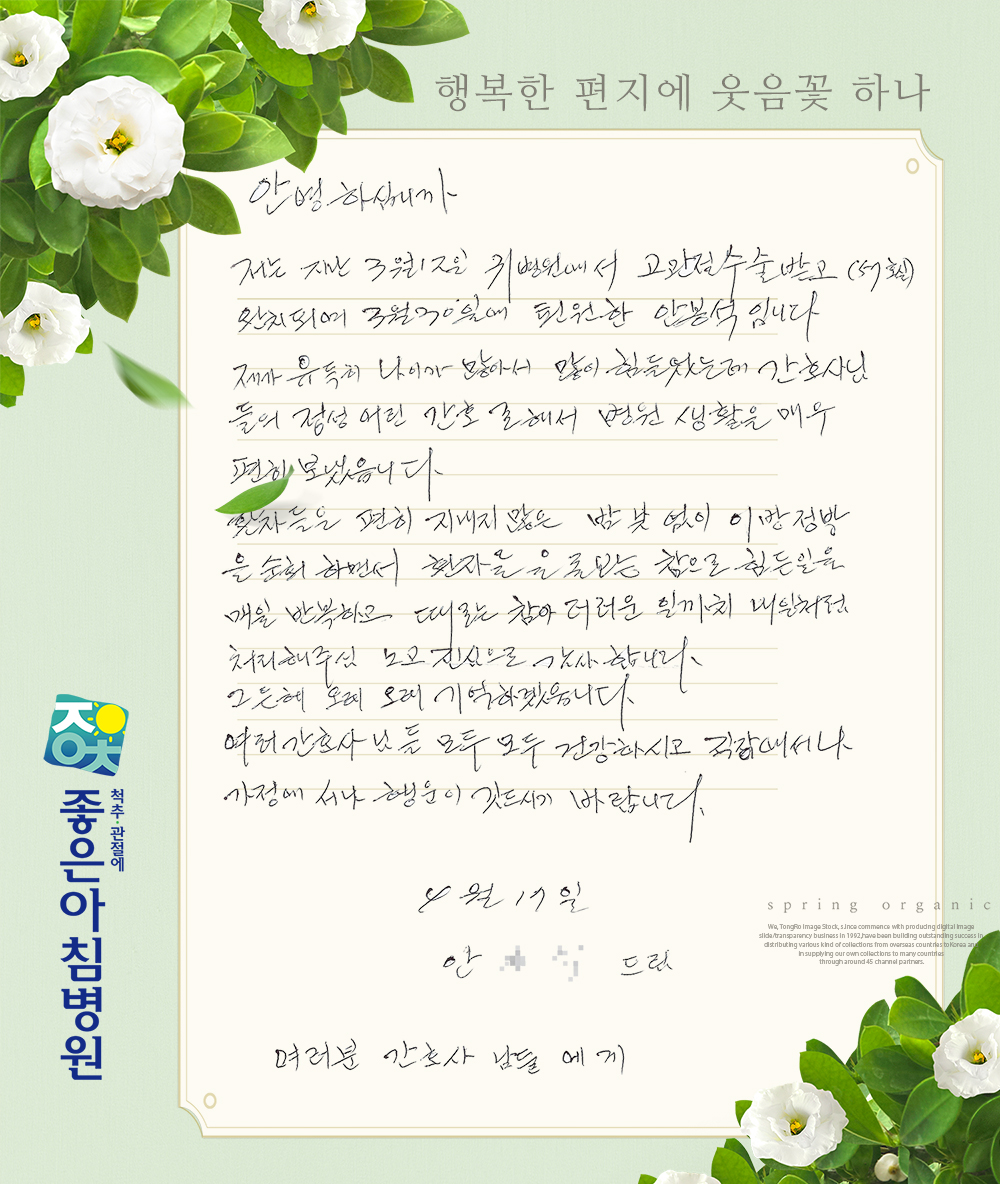 행복한 편지에 웃음꽃 하나
안녕하십니까
저는 지난 3월12일 귀병원에서 고관절수술받고 (57호실)
완치되여 3월30일에 퇸원한 안봉석입니다
제가 유독히 나이가 많아서 많이 힘들었는데 간호사님
들의 정성어린 간호로 해서 병원 생활을 매우
편히 보냈읍니다.
환자들을 편히 지내지많은 밤낮 없이 이방정방
을 순회 하면서 환자들을 돌보는 참으로 힘든일을
매일 반복하고 때로는 참아 더러운 일까지 내일처럼
처리해주신 노고 진심으로 감사 합니다.
그 은혜 오래 오래 기억하겠읍니다.
여러간호사님들 모두 모두 건강하시고 직장에서나
가정에서나 행운이 깃드시기 바랍니다.
4월 17일
안 드림
여러분 간호사 님들 에게
척추·관절에
좋은아침병원
spring organic
We, TongRo Image Stock, s.ince commence with producing digital image
slide/transparency business in 1992,have been building outstanding success in
distributing various kind of collections from overseas countries toKorea an
in supplying our own collections to many countries
through around 45 channel partners.